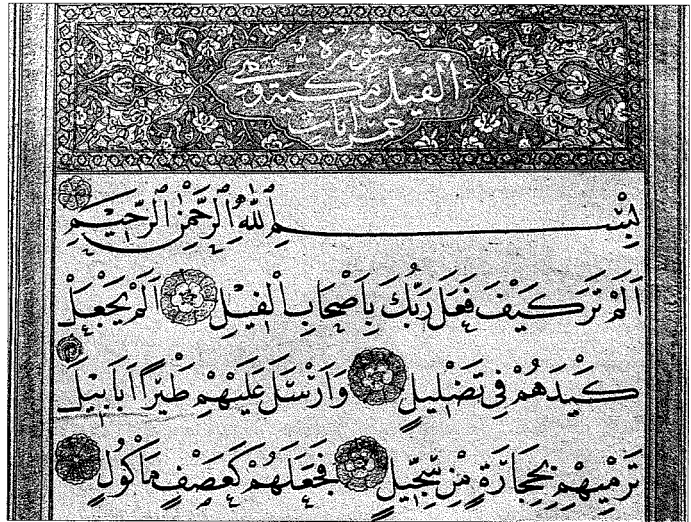 سورة
الفيل مكية وهي
خمس آيات
بِسْمِ ٱللّٰهِ ٱلرَّحْمٰنِ ٱلرَّحِيمِ
اَلَمْ تَرَ كَيْفَ فَعَلَ رَبُّكَ بِاَصْحَابِ الْفيلِ اَلَمْ يَجْعَلْ
كَيْدَهُمْ فِي تَضْليلٍ وَاَرْسَلَ عَلَيْهِمْ طَيْرًا اَبَابيلَ
تَرْميهِمْ بِحِجَارَةٍ مِنْ سِجّيلٍ فَجَعَلَهُمْ كَعَصْفٍ مَأْكُولٍ